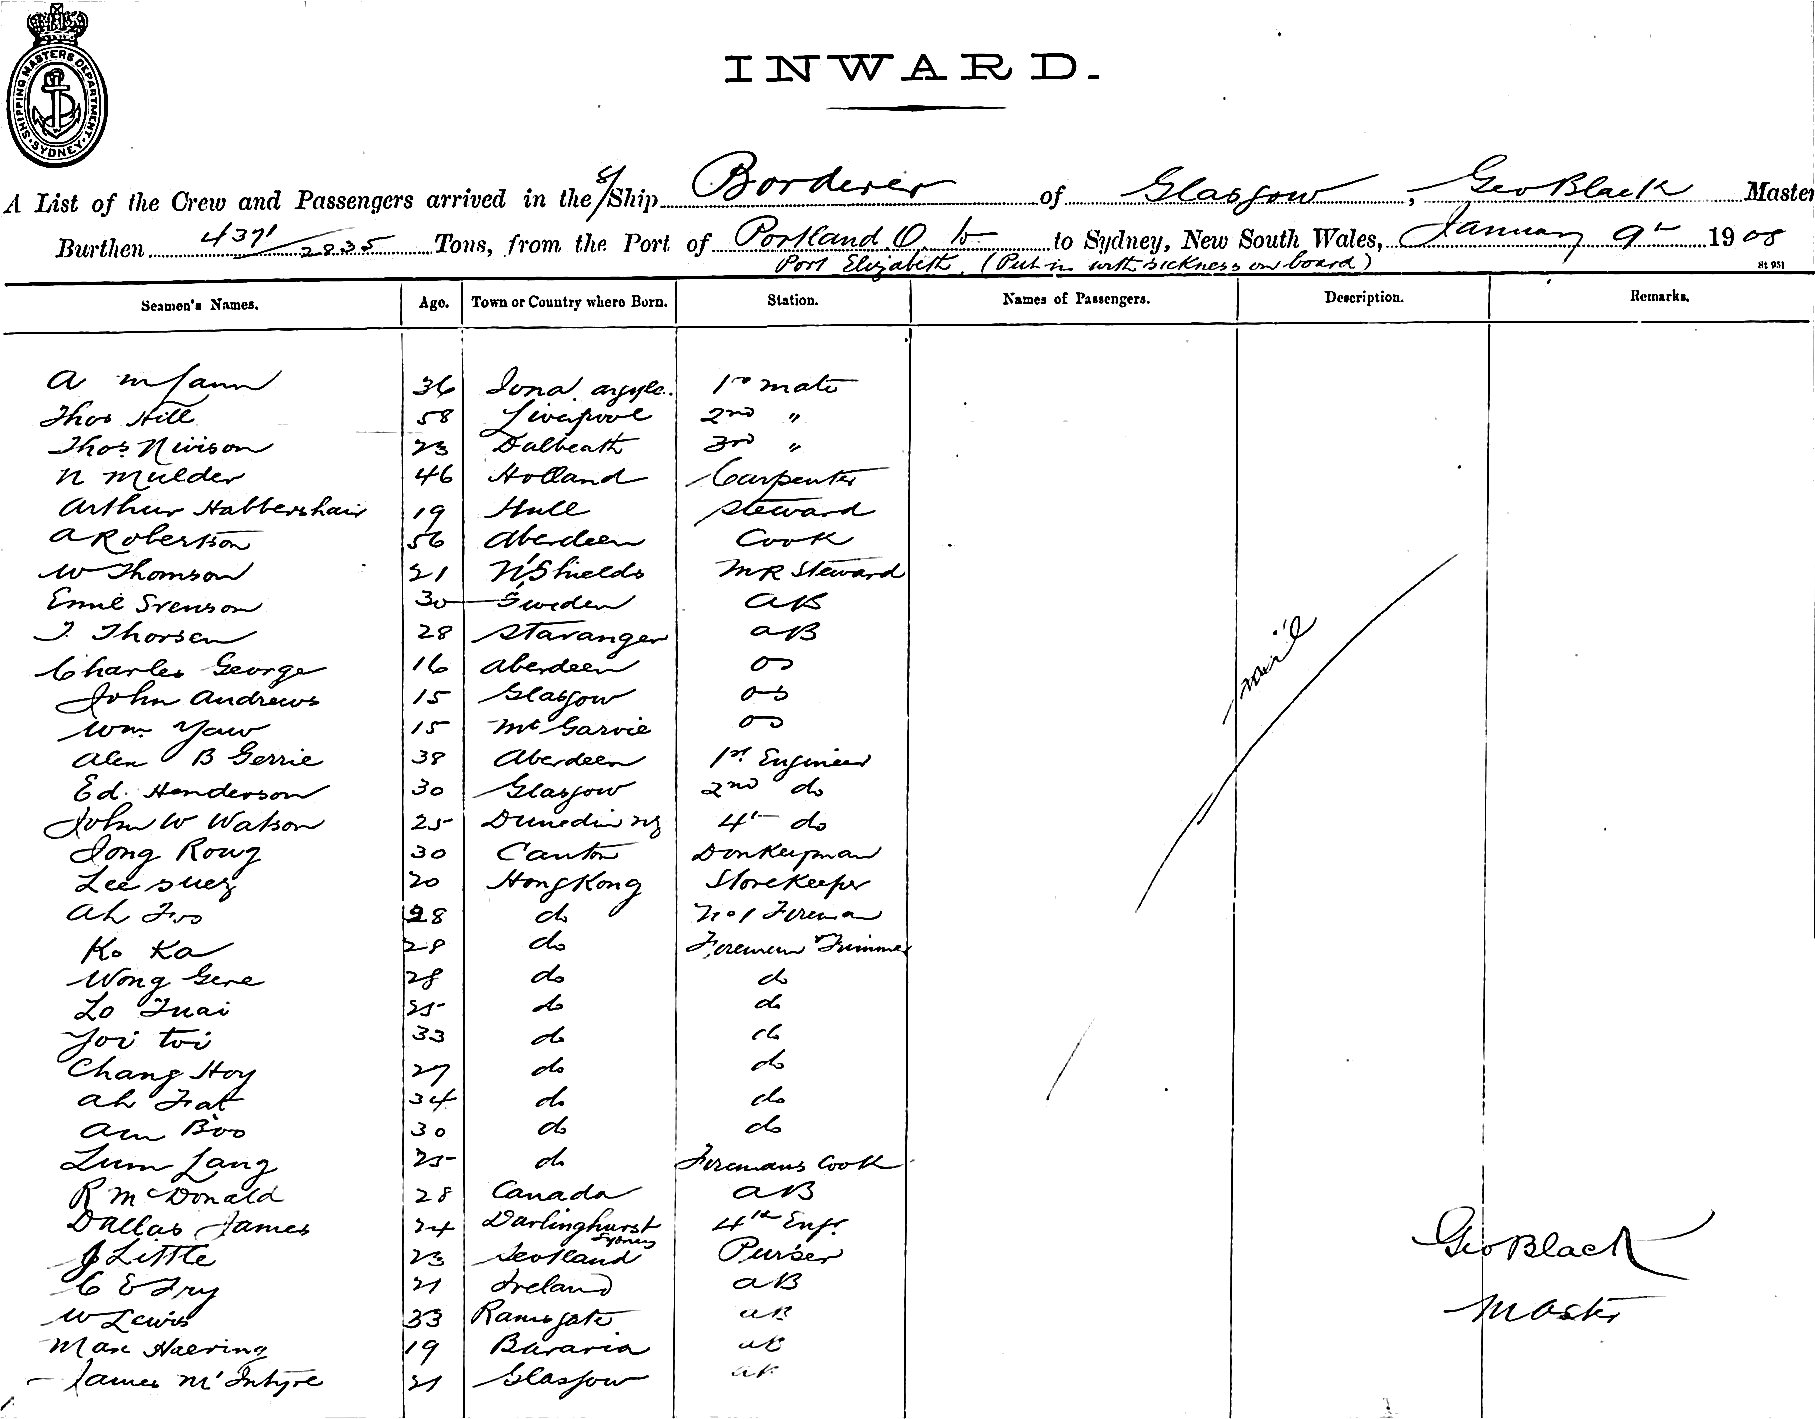 SHIPPING MASTERS DEPARTMENT
SYDNEY
INWARD.
A List of the Crew and Passengers arrived in the S/Ship Borderer of Glasgow, Geo Black Master
Burthen 4371/2835 Tons, from the Port of Portland O. to to Sydney, New South Wales, January 9th 1908
Port Elizabeth. (Put in with sickness on board)
St 951
Seamen's Names. Age. Town or Country where Born. Station. Names of Passengers. Description. Remarks.
A 36 Iona. Argyle. 1st mate
Thos Hill 58 Liverpool 2nd "
Thos Nivison 23 Dalbeath 3rd "
N Mulder 46 Holland Carpenter
Arthur Habbershair 19 Hull Steward
A Robertson 56 Aberdeen Cook
W Thomson 21 N. Shields MR Steward
Emil Svenson 30 Sweden AB
T. Thorsen 28 Stavanger AB
Charles George 16 Aberdeen OS
John Andrews 15 Glasgow OS
Wm Yaw 15 Mt Garvie OS
Alex B Gerrie 38 Aberdeen 1st Engineer
Ed. Henderson 30 Glasgow 2nd do
John W Watson 25 Dunedin NZ 4th do
Iong Rong 30 Canton Donkeyman
Lee Suez 20 HongKong Storekeeper
Ah Foo 28 do No 1 Fireman
Ko Ka 28 do Firemen & Trimmer
Wong Gene 28 do do
Lo Tuai 25 do do
Yoi Toi 33 do do
Chang Hoy 27 do do
Ah Fat 34 do do
Am Boo 30 do do
Lum Lang 25 do Firemans Cook
R McDonald 28 Canada AB
Dallas James 24 Darlinghurst Sydney 4th Engr.
J Little 23 Scotland Purser
C E Fry 21 Ireland AB
W Lewis 33 Ramsgate AB
Max Haering 19 Bavaria AB
James McIntyre 21 Glasgow AB
nil
Geo Black
Master